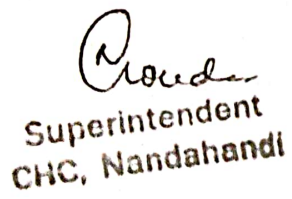 Superintendent
CHC, Nandahandi